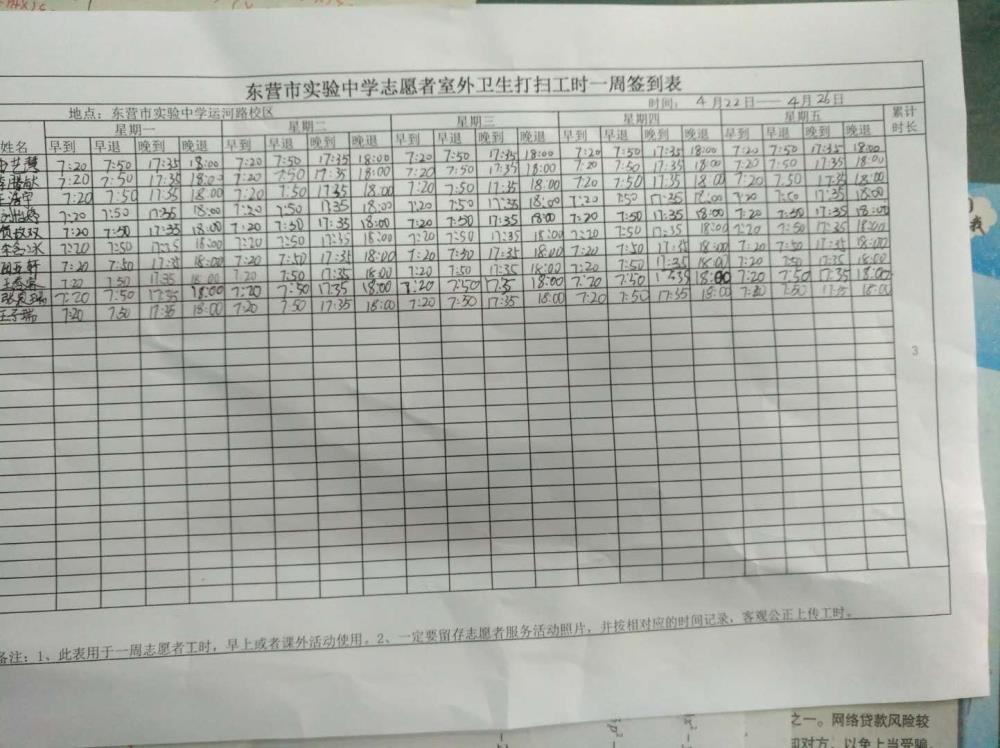 东营市实验中学志愿者室外卫生打扫工时一周签到表
地点：东营市实验中学运河路校区 时间：4月22日——4月26日
姓名 星期一 星期二 星期三 星期四 星期五 累计时长
早到 早退 晚到 晚退 早到 早退 晚到 晚退 早到 早退 晚到 晚退 早到 早退 晚到 晚退 早到 早退 晚到 晚退
7:20 7:50 17:35 18:00 7:20 7:50 17:35 18:00 7:20 7:50 17:35 18:00 7:20 7:50 17:35 18:00 7:20 7:50 17:35 18:00
7:20 7:50 17:35 18:00 7:20 7:50 17:35 18:00 7:20 7:50 17:35 18:00 7:20 7:50 17:35 18:00 7:20 7:50 17:35 18:00
7:20 7:50 17:35 18:00 7:20 7:50 17:35 18:00 7:20 7:50 17:35 18:00 7:20 7:50 17:35 18:00 7:20 7:50 17:35 18:00
7:20 7:50 17:35 18:00 7:20 7:50 17:35 18:00 7:20 7:50 17:35 18:00 7:20 7:50 17:35 18:00 7:20 7:50 17:35 18:00
7:20 7:50 17:35 18:00 7:20 7:50 17:35 18:00 7:20 7:50 17:35 18:00 7:20 7:50 17:35 18:00 7:20 7:50 17:35 18:00
7:20 7:50 17:35 18:00 7:20 7:50 17:35 18:00 7:20 7:50 17:35 18:00 7:20 7:50 17:35 18:00 7:20 7:50 17:35 18:00
7:20 7:50 17:35 18:00 7:20 7:50 17:35 18:00 7:20 7:50 17:35 18:00 7:20 7:50 17:35 18:00 7:20 7:50 17:35 18:00
7:20 7:50 17:35 18:00 7:20 7:50 17:35 18:00 7:20 7:50 17:35 18:00 7:20 7:50 17:35 18:00 7:20 7:50 17:35 18:00
7:20 7:50 17:35 18:00 7:20 7:50 17:35 18:00 7:20 7:50 17:35 18:00 7:20 7:50 17:35 18:00 7:20 7:50 17:35 18:00
王子瑞 7:20 7:50 17:35 18:00 7:20 7:50 17:35 18:00 7:20 7:50 17:35 18:00 7:20 7:50 17:35 18:00 7:20 7:50 17:35 18:00
3
备注：1、此表用于一周志愿者工时，早上或者课外活动使用。2、一定要留存志愿者服务活动照片，并按相对应的时间记录，客观公正上传工时。
之一。网络贷款风险较
和对方，以免上当受骗